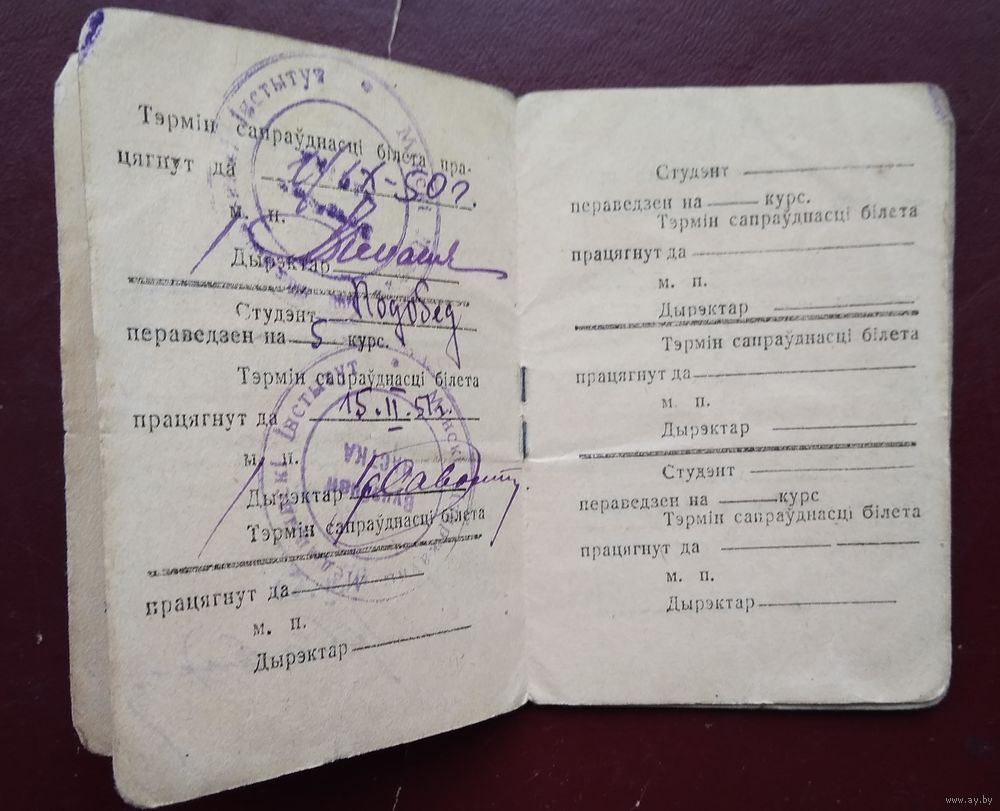 Тэрмін сапраўднасці білета пра-
цягнут да 1/IX-50 г.
м. п.
Дырэктар
Студэнт Подобед
пераведзен на 5 курс.
Тэрмін сапраўднасці білета
працягнут да 15.II.51 г.
м. п.
Дырэктар
Тэрмін сапраўднасці білета
працягнут да
м. п.
Дырэктар
Інстытут
Мінскі
Інстытут
Мінскі
Студэнт
пераведзен на курс.
Тэрмін сапраўднасці білета
працягнут да
м. п.
Дырэктар
Тэрмін сапраўднасці білета
працягнут да
м. п.
Дырэктар
Студэнт
пераведзен на курс
Тэрмін сапраўднасці білета
працягнут да
м. п.
Дырэктар
www.ay.by